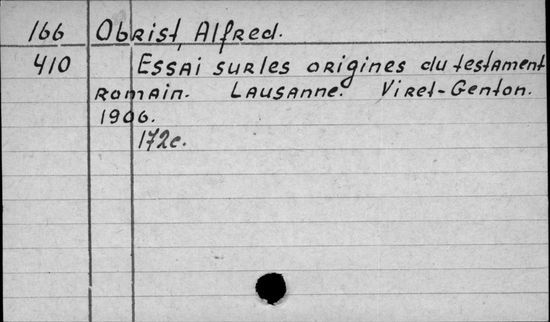 166 Obrist, Alfred.
410 Essai sur les origines du testament
romain. Lausanne. Viret-Genton.
1906.
172c.